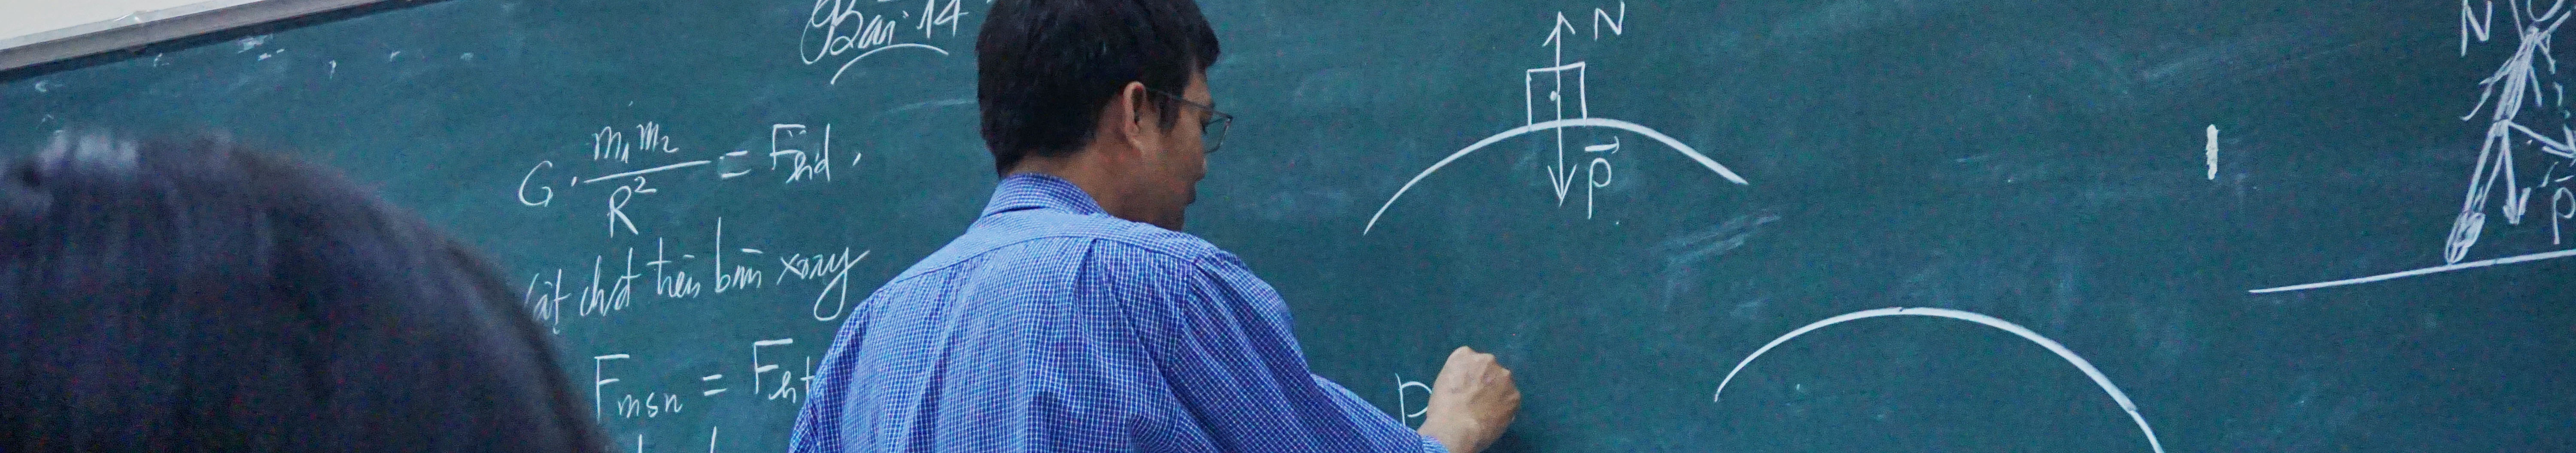 Bài 14
G. m₁m₂/R² = Fhd.
vật chất trên bàn xoay
Fmsn = Fht
N
P
P
N
P